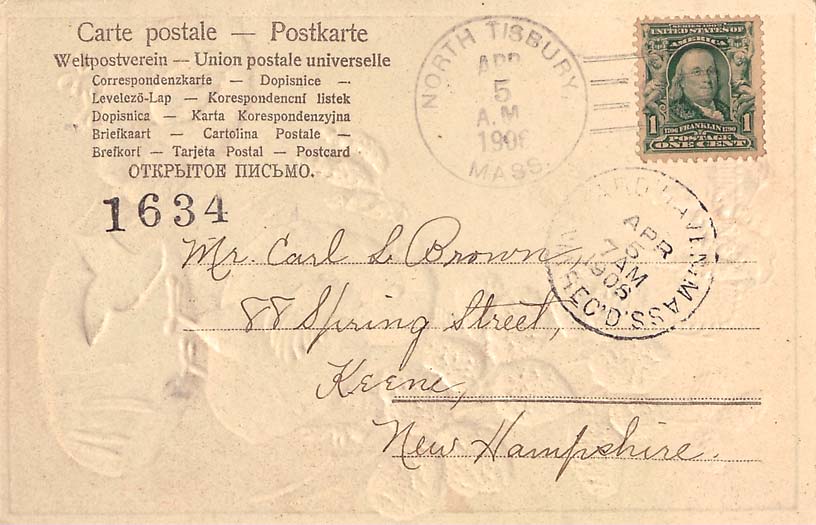 Carte postale — Postkarte
Weltpostverein — Union postale universelle
Correspondenzkarte — Dopisnice —
Levelező-Lap — Korespondenční listek
Dopisnica — Karta Korespondenzyjna
Briefkaart — Cartolina Postale —
Brefkort — Tarjeta Postal — Postcard
ОТКРЫТОЕ ПИСЬМО.
1634
NORTH TISBURY,
APR
5
A.M
1906
MASS.
SERIES 1902
UNITED STATES OF
AMERICA
1706 FRANKLIN 1790
1 POSTAGE 1
ONE CENT
HAVEN, MASS
APR
5
7 AM
1906
REC'D.
Mr. Carl L. Brown
88 Spring Street,
Keene,
New Hampshire.